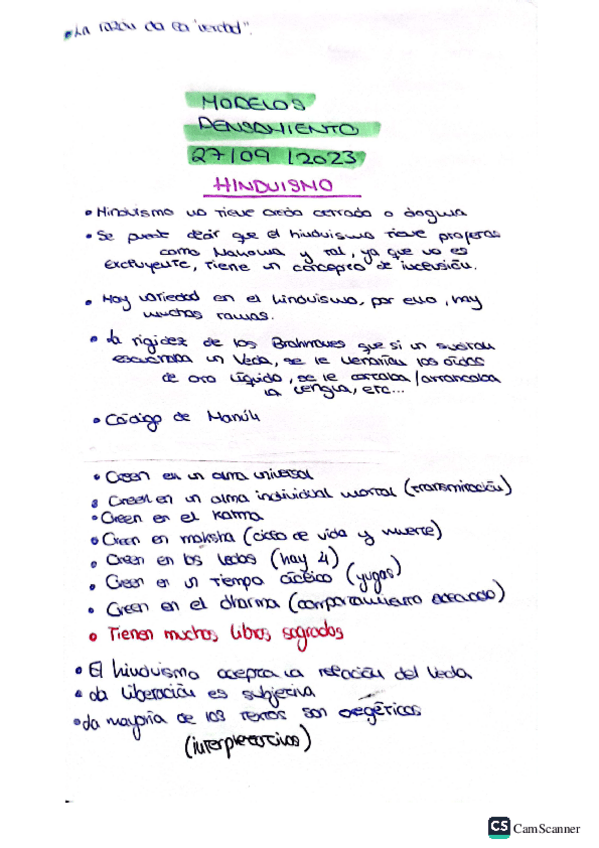 • La razón da la "verdad".
MODELOS
PENSAMIENTO
27/09/2023
HINDUISMO
• Hinduismo no tiene credo cerrado o dogma
• Se puede decir que el hinduismo tiene profetas
como Mahoma y tal, ya que no es
excluyente, tiene un concepto de inclusión.
• Hay variedad en el hinduismo, por ello, hay
muchas ramas.
• La rigidez de los Brahmanes que si un
escuchaba un Veda, se le llenarían los oídos
de oro líquido, se le cortaba/arrancaba
la lengua, etc...
• Código de Manú
• Creen en un alma universal
• Creen en un alma individual mortal
• Creen en el Karma
• Creen en moksha (ciclo de vida y muerte)
• Creen en los Vedas (hay 4)
• Creen en un tiempo cíclico (yugas)
• Creen en el dharma (comportamiento adecuado)
• Tienen muchos libros sagrados
• El hinduismo acepta la relación del Veda
• La liberación es subjetiva
• La mayoría de los textos son exegéticos
(interpretativos)
CS CamScanner